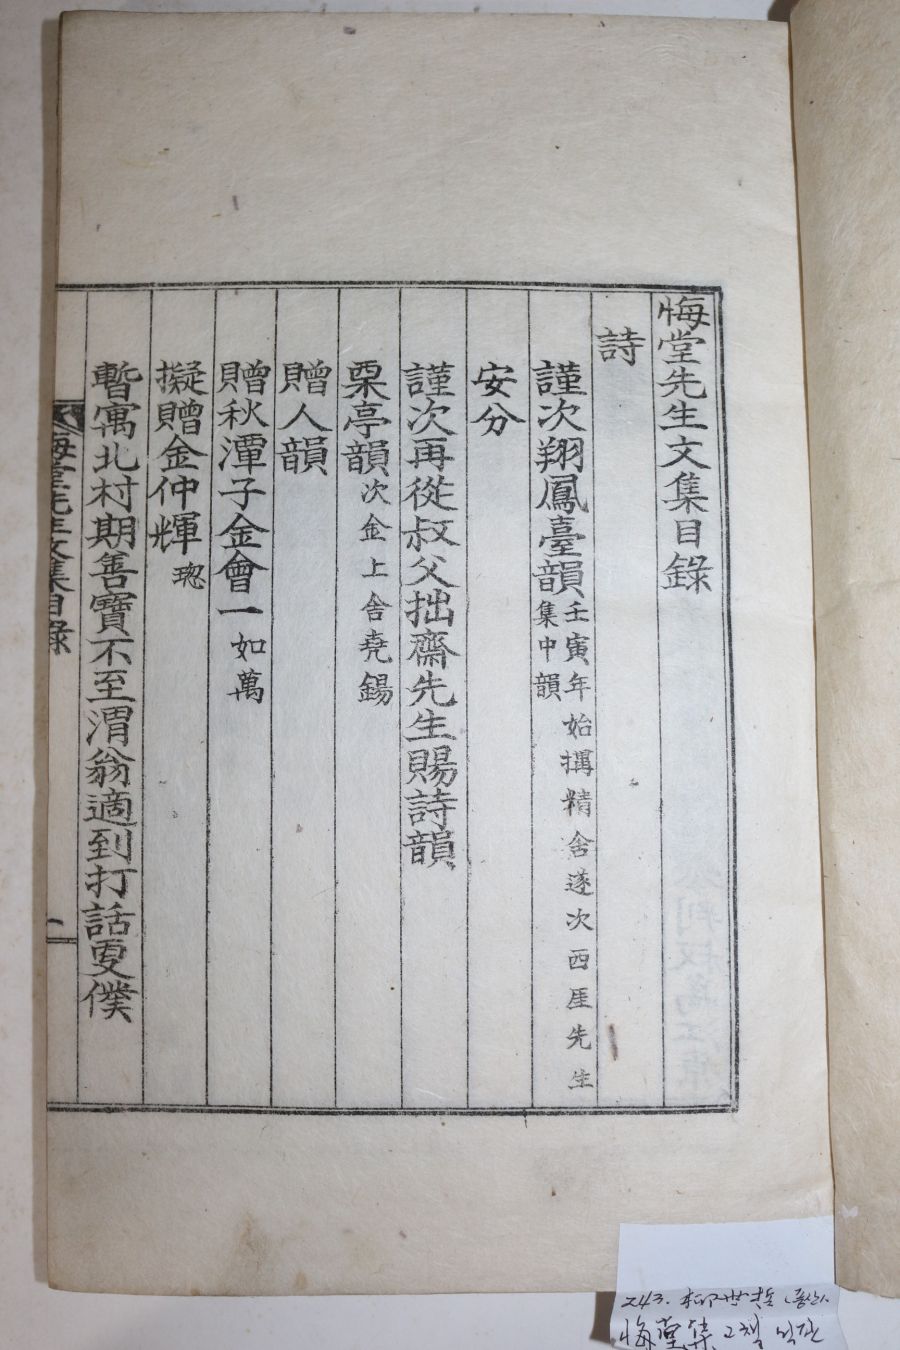 悔堂先生文集目錄
詩
謹次翔鳳臺韻 壬寅年始搆精舍遂次西厓先生
集中韻
安分
謹次再從叔父拙齋先生賜詩韻
栗亭韻 次金上舍堯鍚
贈人韻
贈秋潭子金會一 如萬
擬贈金仲輝
暫寓北村期善寶不至渭翁適到打話更僕
悔堂先生文集目錄
一
243. 柳世哲
悔堂集 2책